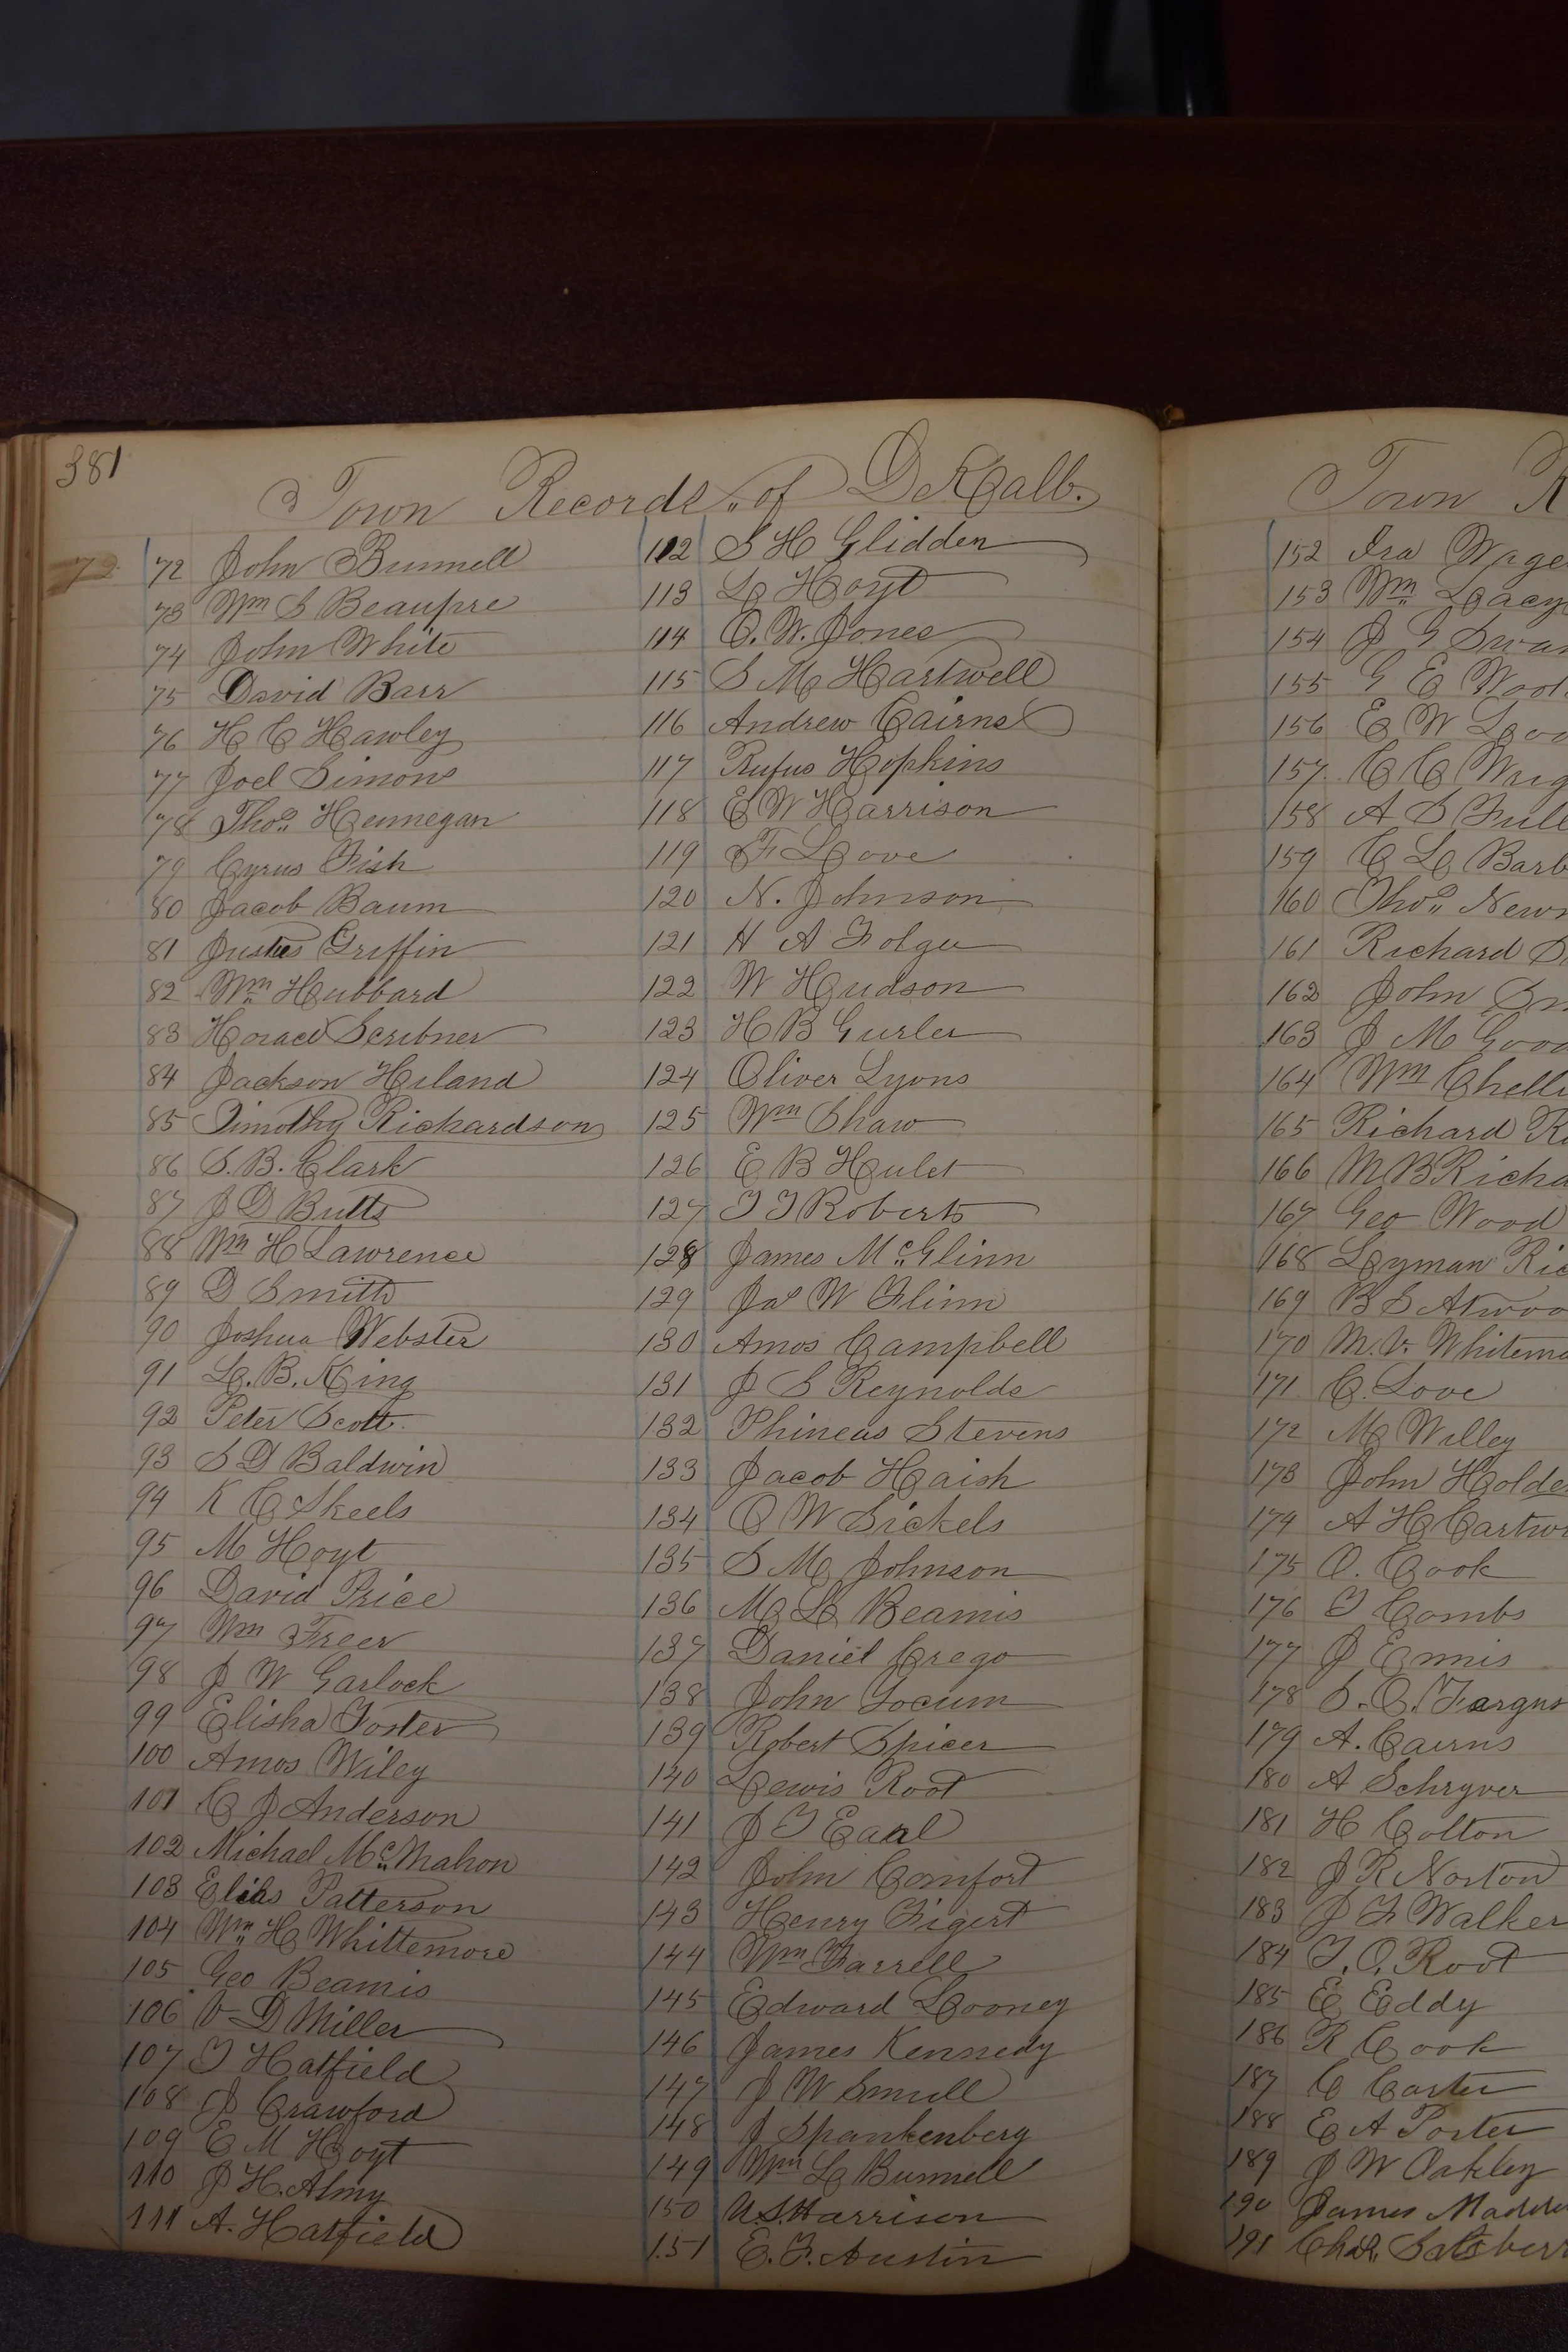 381
Town Records of DeKalb.
72
72 John Bunnell
73 Wm S Beaupre
74 John White
75 David Barr
76 H C Hawley
77 Joel Simons
78 Thos Hennegan
79 Cyrus Fish
80 Jacob Baum
81 Justus Griffin
82 Wm Hubbard
83 Horace Scribner
84 Jackson Hiland
85 Timothy Richardson
86 S. B. Clark
87 J D Butts
88 Wm H Lawrence
89 D Smith
90 Joshua Webster
91 L. B. King
92 Peter Scott
93 S D Baldwin
94 K C Skeels
95 M Hoyt
96 David Price
97 Wm Freer
98 J W Garlock
99 Elisha Foster
100 Amos Wiley
101 C J Anderson
102 Michael McMahon
103 Elihs Patterson
104 Wm H Whittemore
105 Geo Beamis
106 V D Miller
107 T Hatfield
108 J Crawford
109 E M Hoyt
110 J H. Almy
111 A. Hatfield
112 S H Glidden
113 L Hoyt
114 O. W. Jones
115 S M Hartwell
116 Andrew Cairns
117 Rufus Hopkins
118 E W Harrison
119 F Love
120 N. Johnson
121 H A Folger
122 W Hudson
123 H B Gurler
124 Oliver Lyons
125 Wm Shaw
126 E B Hulet
127 T T Roberts
128 James McGlinn
129 Jas W Flinn
130 Amos Campbell
131 J S Reynolds
132 Phineas Stevens
133 Jacob Haish
134 O W Sickels
135 S M Johnson
136 M L Beamis
137 Daniel Crego
138 John Socum
139 Robert Spicer
140 Lewis Root
141 J T Earl
142 John Comfort
143 Henry Figert
144 Wm Farrell
145 Edward Looney
146 James Kennedy
147 J W Smull
148 J Spankenberg
149 Wm L Bunnell
150 U. S. Harrison
151 E. F. Austin
Town R
152 Ira Wage
153 Wm Lacy
154 J G Swan
155 G E Wood
156 E W Loo
157 C C Wrig
158 A S Full
159 C L Barb
160 Thos Newm
161 Richard S
162 John Sm
163 J M Good
164 Wm Chelli
165 Richard R
166 M B Richa
167 Geo Wood
168 Lyman Ric
169 B S Atwoo
170 M. V. Whitema
171 C. Love
172 M Willey
173 John Holde
174 A H Cartwr
175 O. Cook
176 T Combs
177 J Ennis
178 S. O. Fargus
179 A. Cairns
180 A Schryver
181 H Colton
182 J R Norton
183 J F Walker
184 T. O. Root
185 E Eddy
186 R Cook
187 C Carter
188 E A Porter
189 J W Oakley
190 James Madde
191 Chas. Salsberr